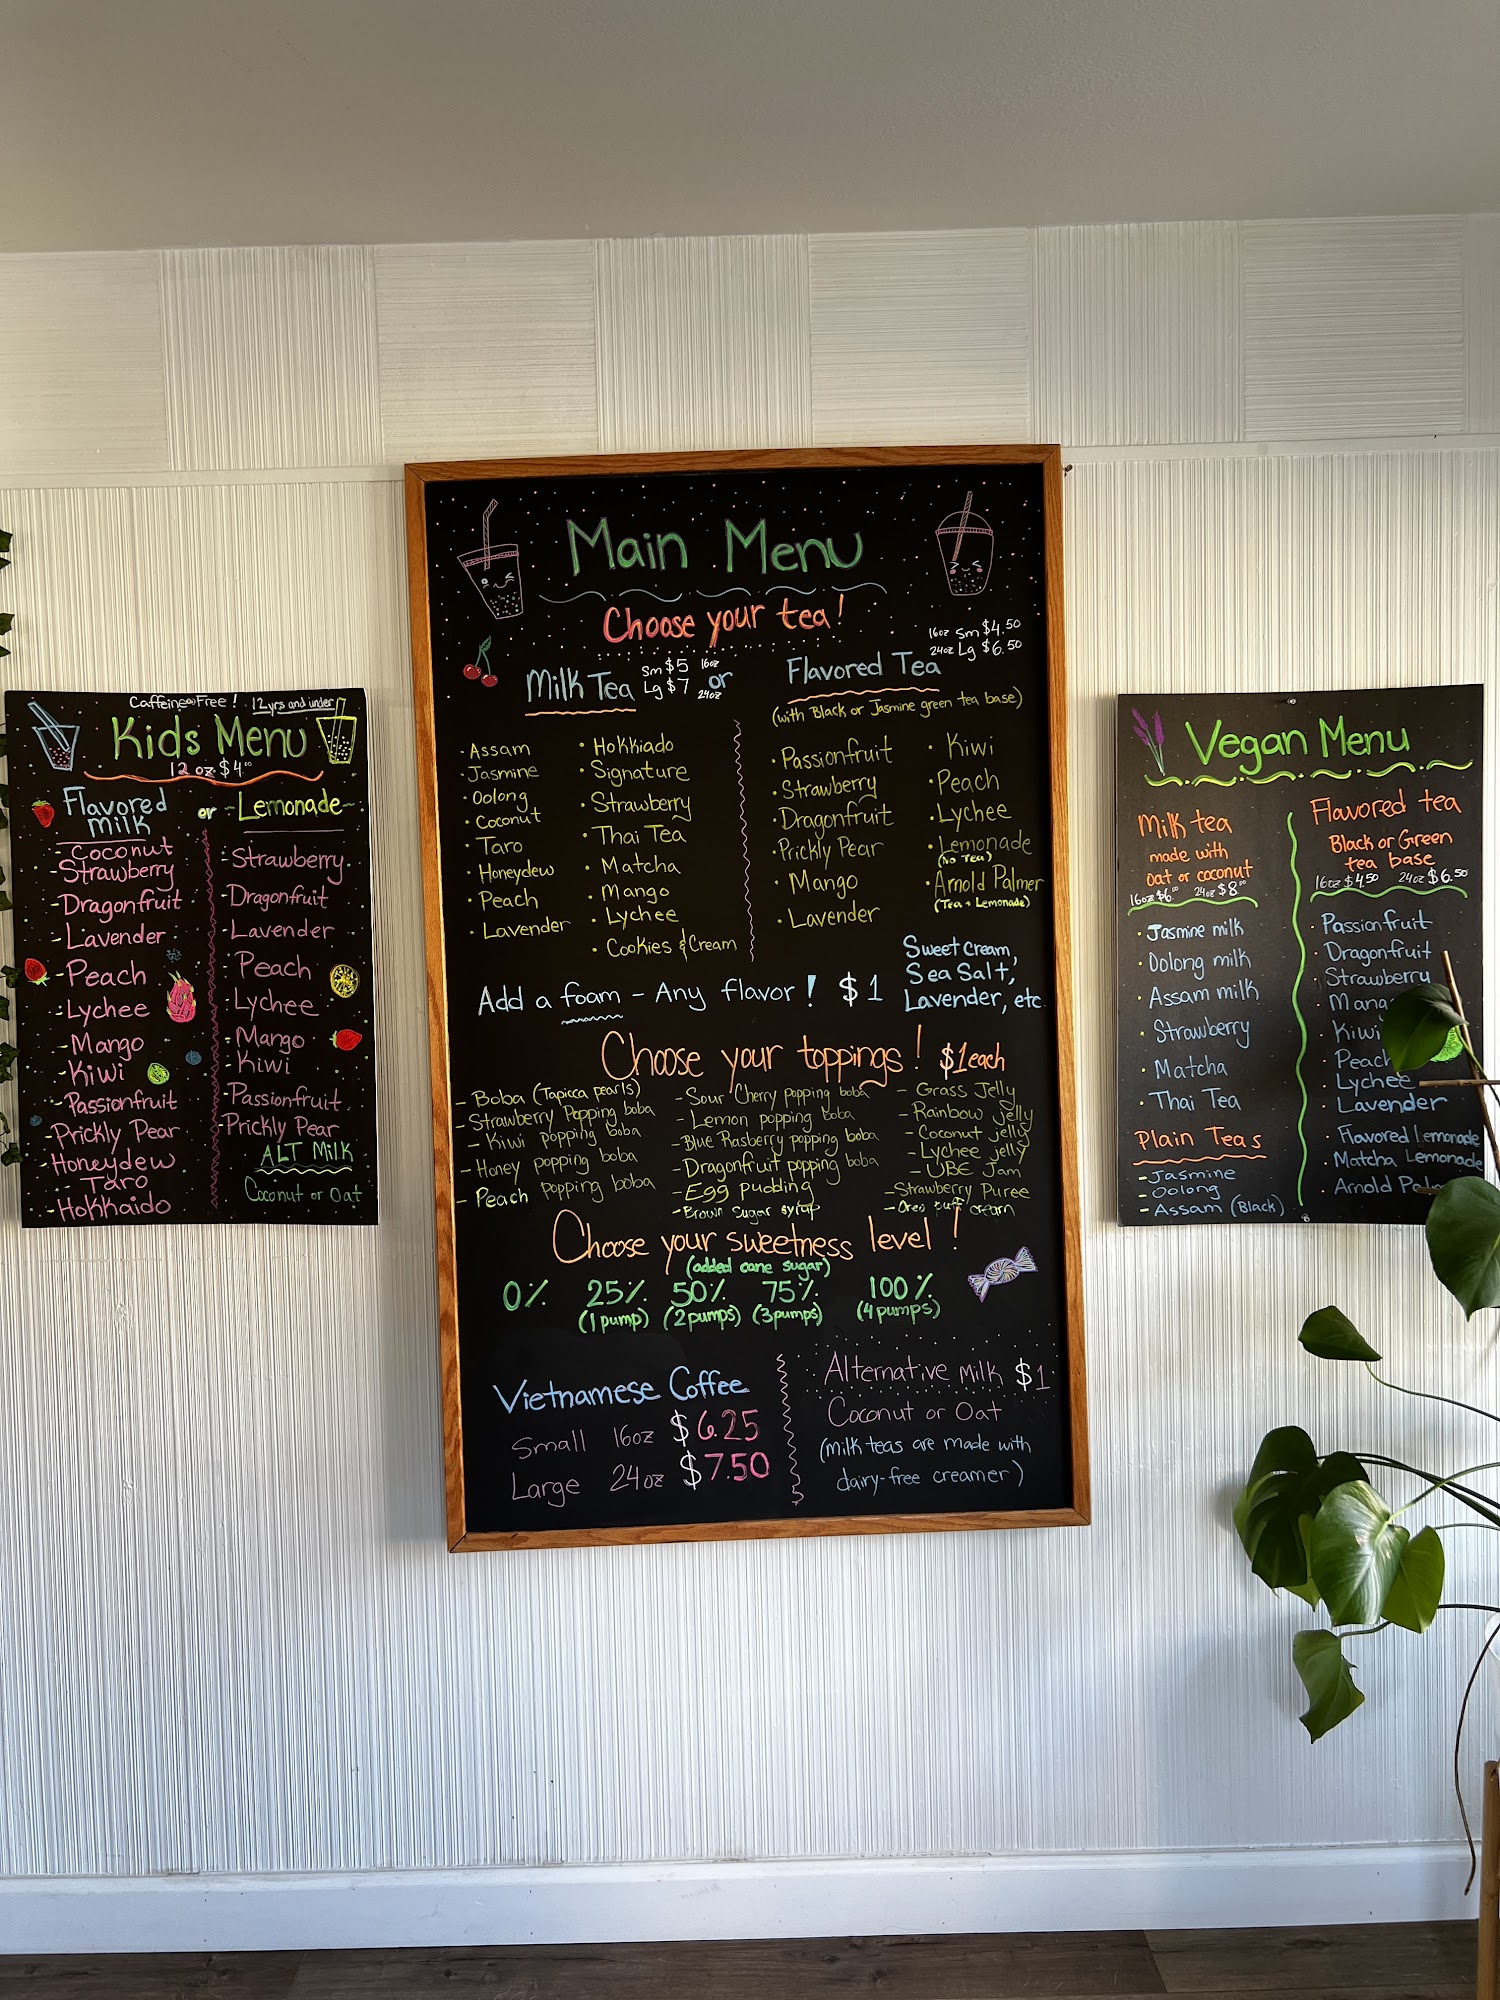 Caffeine Free! 12yrs and under
Kids Menu
12 oz $4.00
Flavored milk
or
Lemonade
- Coconut
- Strawberry
- Dragonfruit
- Lavender
- Peach
- Lychee
- Mango
- Kiwi
- Passionfruit
- Prickly Pear
- Honeydew
- Taro
- Hokkaido
- Strawberry
- Dragonfruit
- Lavender
- Peach
- Lychee
- Mango
- Kiwi
- Passionfruit
- Prickly Pear
ALT Milk
Coconut or Oat
Main Menu
Choose your tea!
Milk Tea
Sm $5 16oz
Lg $7 24oz
or
Flavored Tea
16oz Sm $4.50
24oz Lg $6.50
(with Black or Jasmine green tea base)
• Assam
• Jasmine
• Oolong
• Coconut
• Taro
• Honeydew
• Peach
• Lavender
• Hokkiado
• Signature
• Strawberry
• Thai Tea
• Matcha
• Mango
• Lychee
• Cookies & Cream
• Passionfruit
• Strawberry
• Dragonfruit
• Prickly Pear
• Mango
• Lavender
• Kiwi
• Peach
• Lychee
• Lemonade
(No Tea)
• Arnold Palmer
(Tea + Lemonade)
Add a foam - Any flavor! $1
Sweet Cream,
Sea Salt,
Lavender, etc.
Choose your toppings! $1 each
- Boba (Tapioca pearls)
- Strawberry Popping boba
- Kiwi popping boba
- Honey popping boba
- Peach popping boba
- Sour Cherry popping boba
- Lemon popping boba
- Blue Rasberry popping boba
- Dragonfruit popping boba
- Egg pudding
- Brown Sugar syrup
- Grass Jelly
- Rainbow jelly
- Coconut jelly
- Lychee jelly
- UBE Jam
- Strawberry Puree
- Oreo puff cream
Choose your sweetness level!
(added cane sugar)
0% 25% 50% 75% 100%
(1 pump) (2 pumps) (3 pumps) (4 pumps)
Vietnamese Coffee
Small 16oz $6.25
Large 24oz $7.50
Alternative Milk $1
Coconut or Oat
(milk teas are made with
dairy-free creamer)
Vegan Menu
Milk tea
made with
oat or coconut
16oz $6.00 24oz $8.00
• Jasmine milk
• Oolong milk
• Assam milk
• Strawberry
• Matcha
• Thai Tea
Plain Teas
- Jasmine
- Oolong
- Assam (Black)
Flavored tea
Black or Green
tea base
16oz $4.50 24oz $6.50
• Passionfruit
• Dragonfruit
• Strawberry
• Mango
• Kiwi
• Peach
• Lychee
• Lavender
• Flavored Lemonade
• Matcha Lemonade
• Arnold